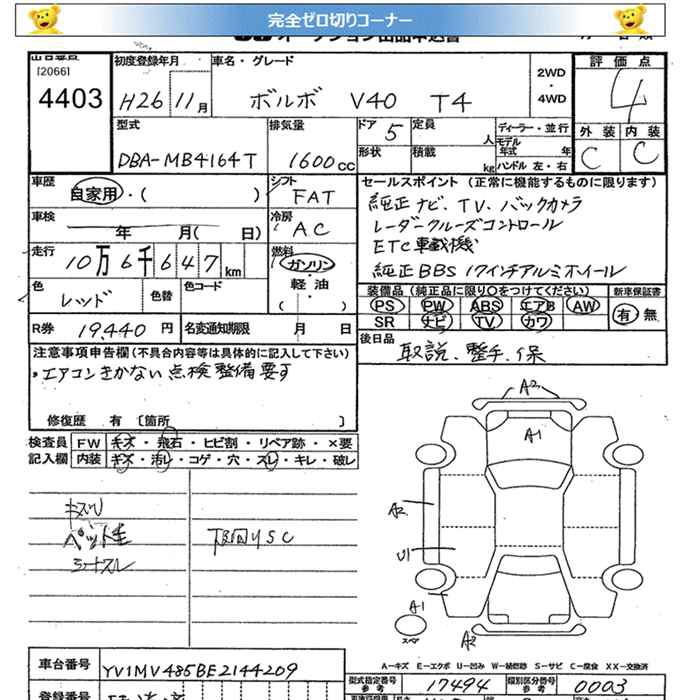 完全ゼロ切りコーナー
[2066]
4403
初度登録年月
H26 11月
車名・グレード
ボルボ V40 T4
2WD
・
4WD
評価点
4
外装 内装
C C
型式
DBA-MB4164T
排気量
1600cc
ドア 5
定員 人
形状
積載 kg
ディーラー・並行
モデル年式 年
ハンドル 左・右
車歴
自家用・( )
シフト
FAT
車検
年 月( 日)
冷房
AC
走行
10万6千647km
燃料
ガソリン
軽油
( )
色
レッド
色替
色コード
R券 19,440円
名変通知期限 月 日
セールスポイント (正常に機能するものに限ります)
純正ナビ、TV、バックカメラ
レーダークルーズコントロール
ETC車載機
純正BBS 17インチアルミホイール
装備品(純正品に限り○をつけてください)
PS PW ABS エアB AW
SR ナビ TV カワ
新車保証書
有 無
後日品
取説、整手、保
注意事項申告欄(不具合内容等は具体的に記入して下さい)
・エアコンきかない点検整備要す
修復歴 有 [箇所 ]
検査員 FW キズ・飛石・ヒビ割・リペア跡・×要
記入欄 内装 キズ・汚レ・コゲ・穴・スレ・キレ・破レ
A2
A1
A2
U1
A1
スペア
A2
A-キズ E-エクボ U-凹み W-補修跡 S-サビ C-腐食 XX-交換済
車台番号
YV1MV485BE2144209
型式指定番号
参考
17494
類別区分番号
参考
0003
登録番号